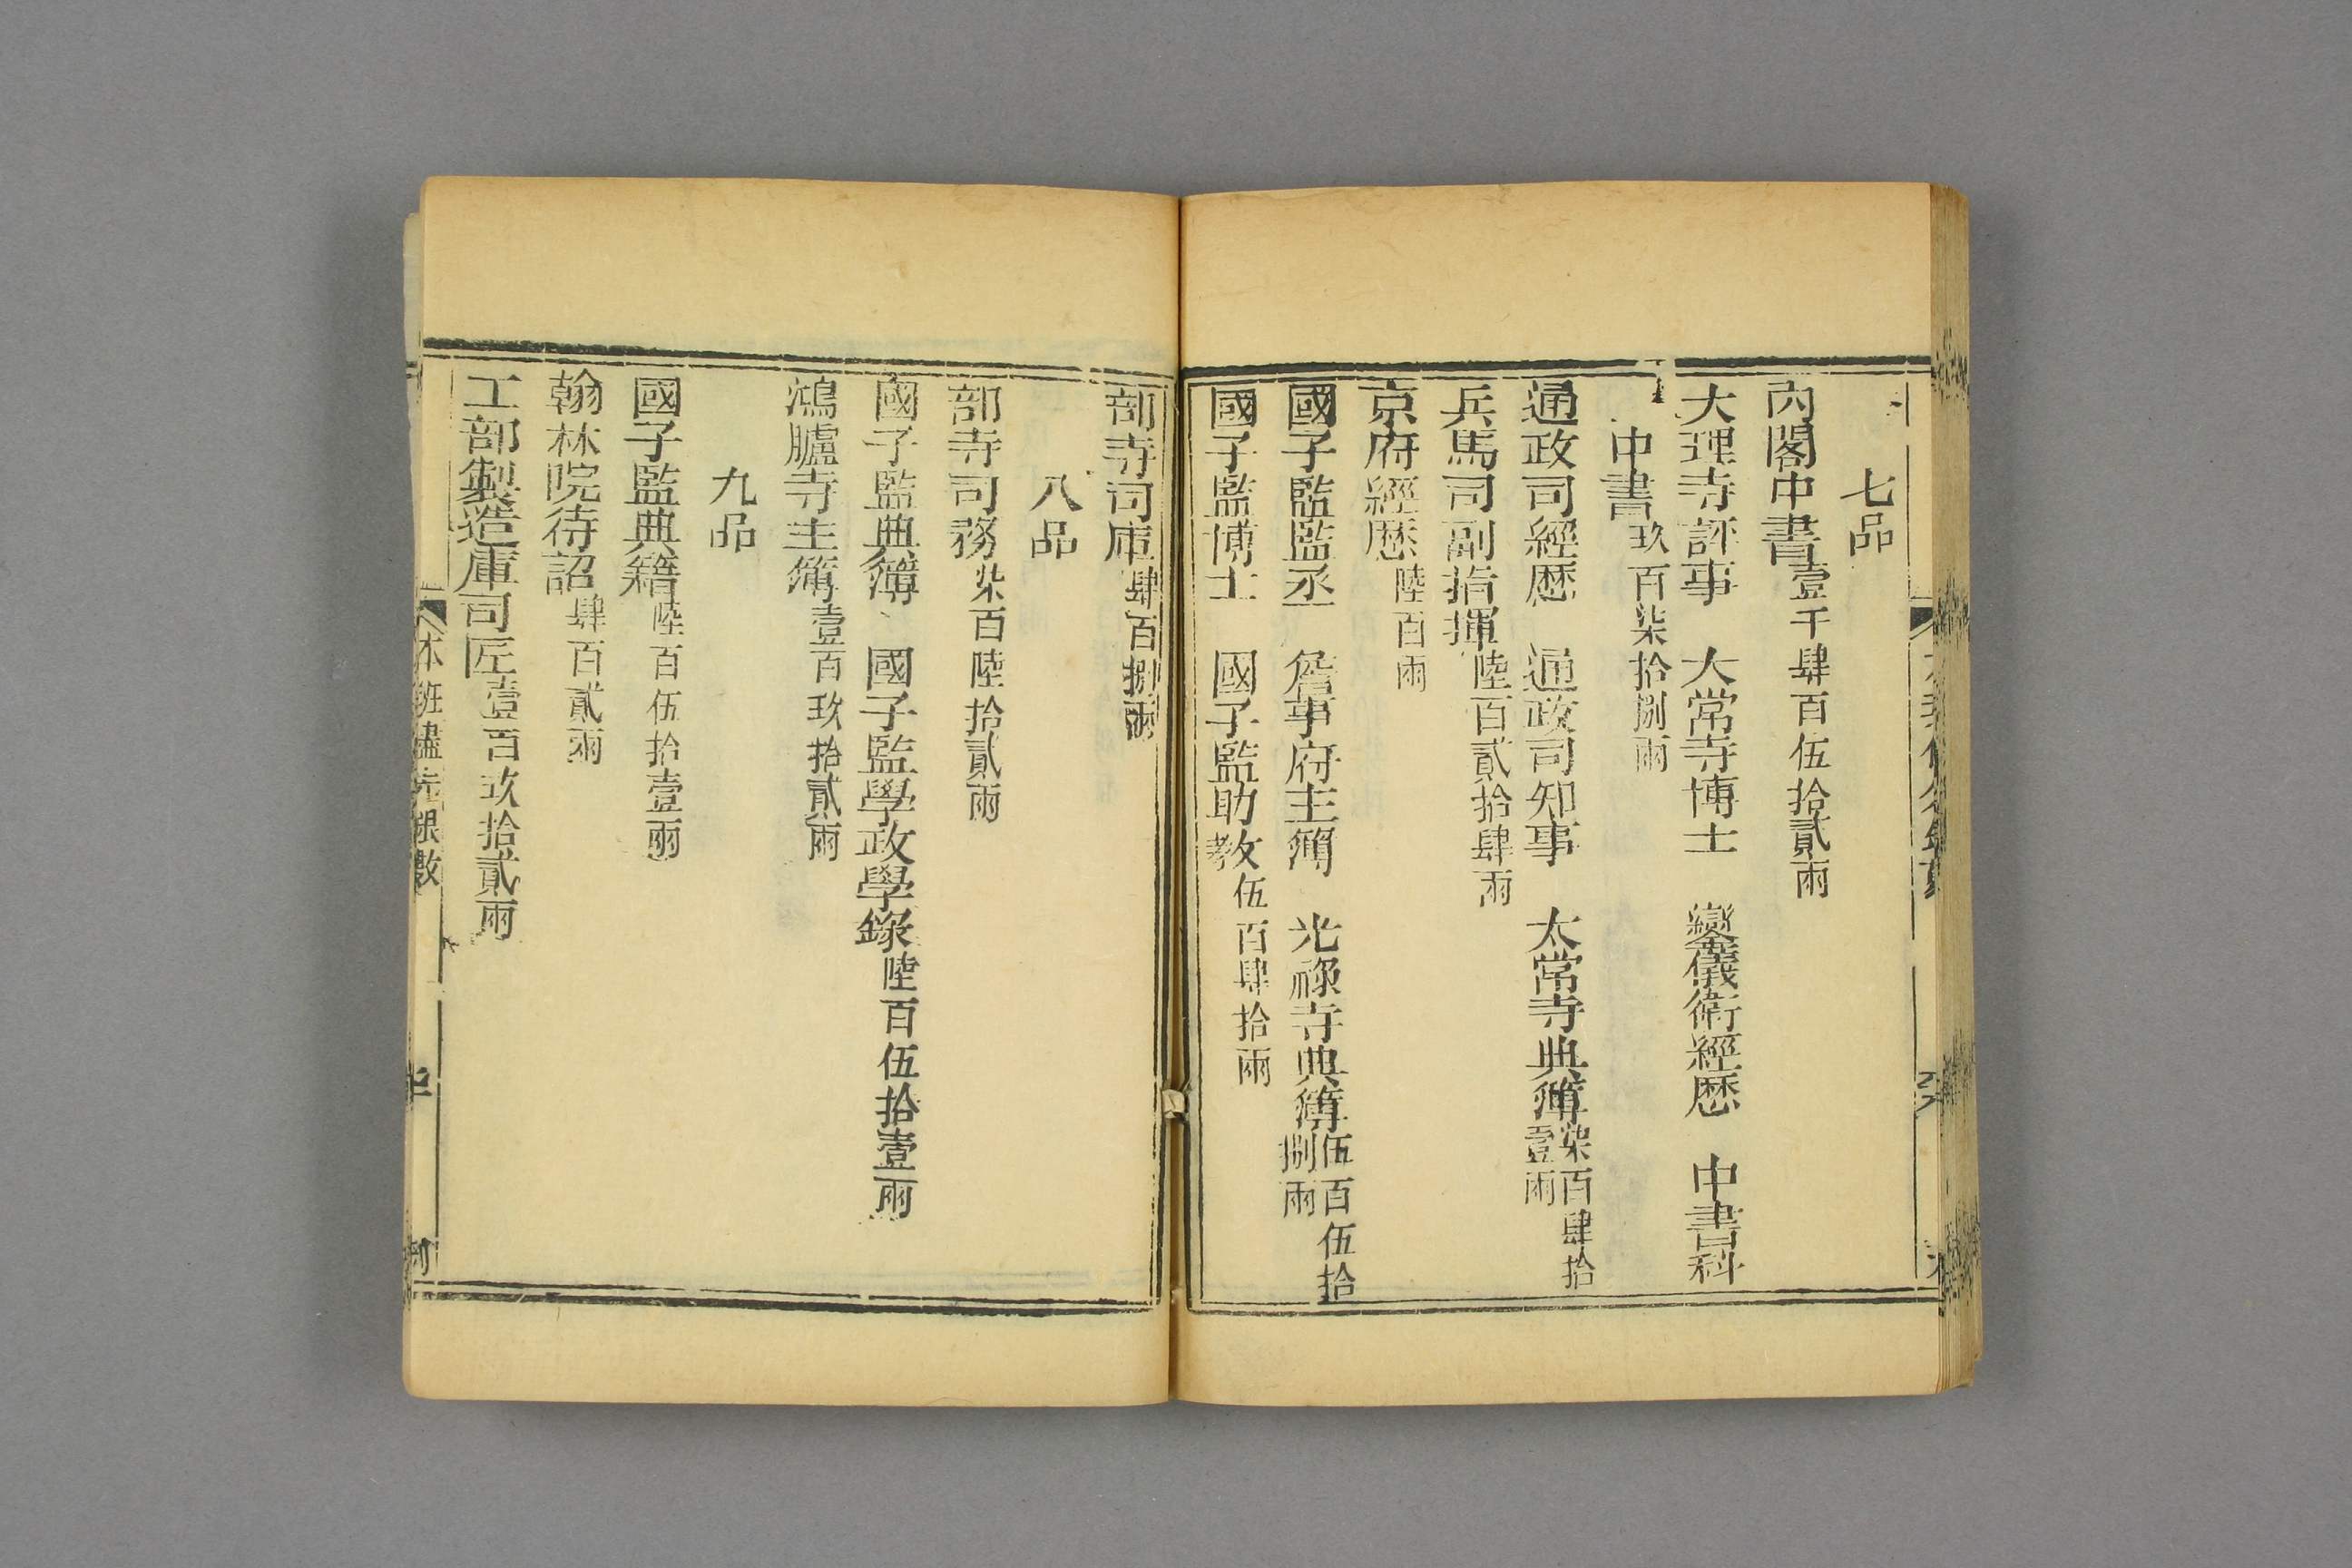 七品
內閣中書壹千肆百伍拾貳兩
大理寺評事　大常寺博士　鑾儀衛經歷　中書科
中書玖百柒拾捌兩
通政司經歷　通政司知事　太常寺典簿柒百肆拾壹兩
兵馬司副指揮陸百貳拾肆兩
京府經歷陸百兩
國子監監丞　詹事府主簿　光祿寺典簿伍百伍拾捌兩
國子監博士　國子監助教伍百肆拾兩
部寺司庫肆百捌兩
八品
部寺司務柒百陸拾貳兩
國子監典簿　國子監學政學錄陸百伍拾壹兩
鴻臚寺主簿壹百玖拾貳兩
九品
國子監典籍陸百伍拾壹兩
翰林院待詔肆百貳兩
工部製造庫司匠壹百玖拾貳兩
本班儘先銀數